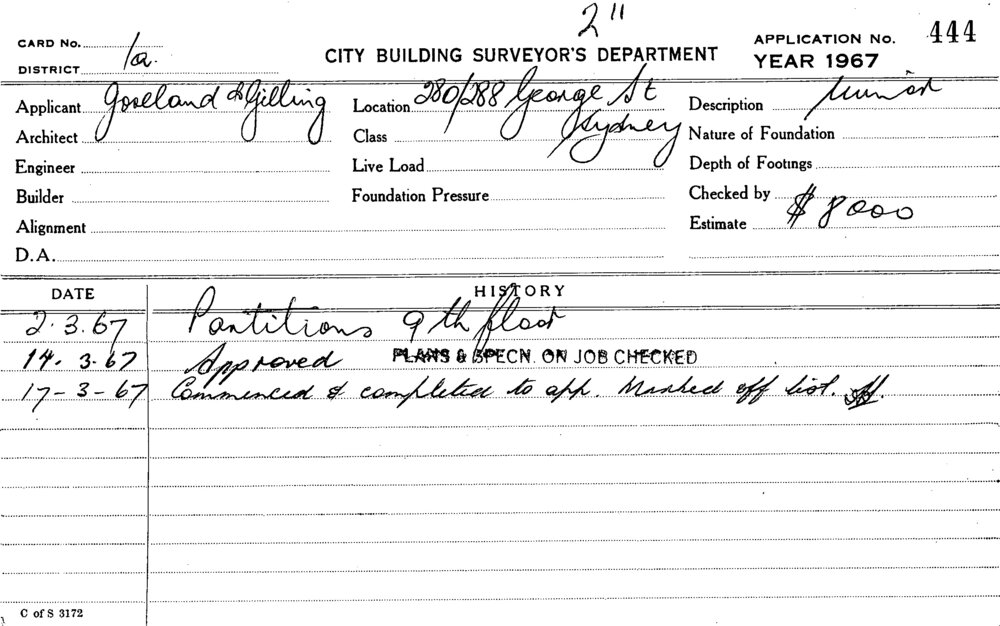 2"
CARD No.
DISTRICT 1a.
CITY BUILDING SURVEYOR'S DEPARTMENT
APPLICATION No. 444
YEAR 1967
Applicant Joseland & Gilling
Architect
Engineer
Builder
Alignment
D.A.
Location 280/288 George St
Sydney
Class
Live Load
Foundation Pressure
Description Minor
Nature of Foundation
Depth of Footings
Checked by
Estimate $8000
DATE HISTORY
2.3.67 Partitions 9th floor
14.3.67 Approved PLANS & SPECN. ON JOB CHECKED
17-3-67 Commenced & completed to app. Marked off list.
C of S 3172